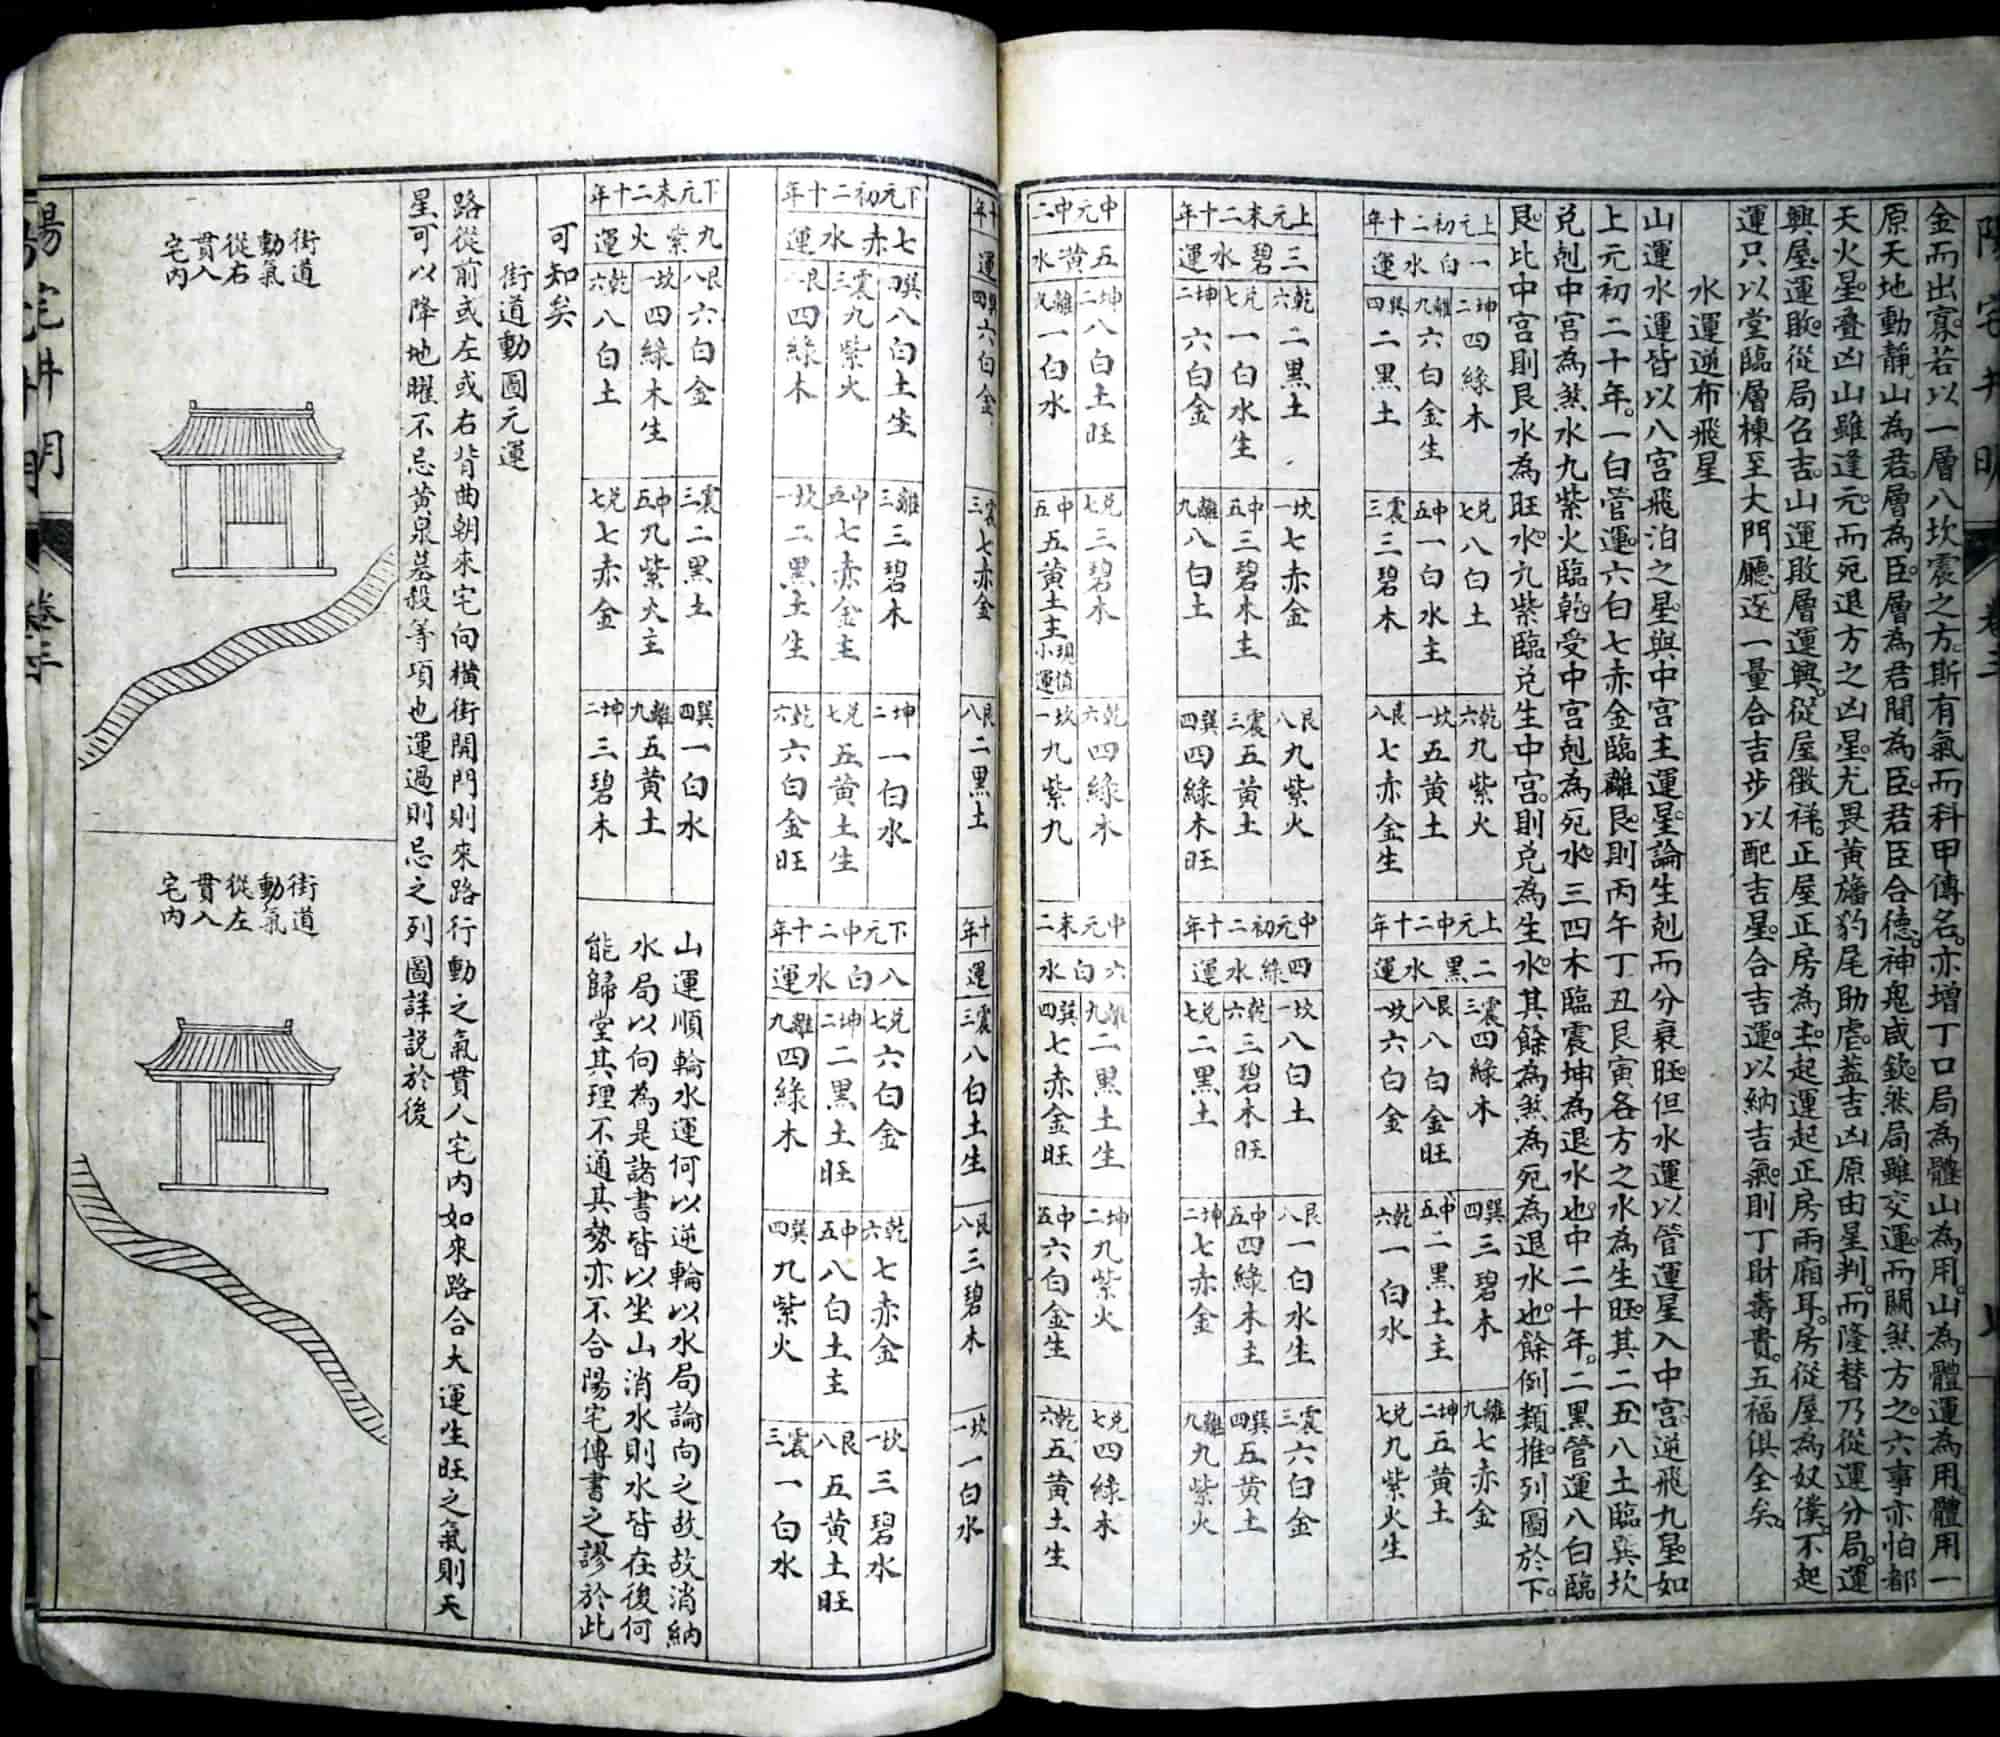 陽宅井明
卷三
金而出寡若以一層八坎震之方斯有氣而科甲傳名亦增丁口局為體山為用山為體運為用體用一
原天地動靜山為君層為臣層為君間為臣君臣合德神鬼咸欽然局雖交運而關煞方之六事亦怕都
天火星叠凶山雖逢元而死退方之凶星尤畏黃旛豹尾助虐蓋吉凶原由星判而隆替乃從運分局運
興屋運敗從局召吉山運敗層運興從屋徵祥正屋正房為主起運起正房兩廂耳房從屋為奴僕不起
運只以堂臨層棟至大門廳逐一量合吉步以配吉星合吉運以納吉氣則丁財壽貴五福俱全矣
水運逆布飛星
山運水運皆以八宮飛泊之星與中宮主運星論生剋而分衰旺但水運以管運星入中宮逆飛九星如
上元初二十年一白管運六白七赤金臨離艮則丙午丁丑艮寅各方之水為生旺其二五八土臨巽坎
兌剋中宮為煞水九紫火臨乾受中宮剋為死水三四木臨震坤為退水也中二十年二黑管運八白臨
艮比中宮則艮水為旺水九紫臨兌生中宮則兌為生水其餘為煞為死為退水也餘倒類推列圖於下
上元初二十年
一白水運
坤二四綠木
離九六白金生
巽四二黑土
兌七八白土
中五一白水主
震三三碧木
乾六九紫火
坎一五黃土
艮八七赤金生
上元中二十年
二黑水運
震三四綠木
艮八八白金旺
坎一六白金
巽四三碧木
中五二黑土主
乾六一白水
離九七赤金
坤二五黃土
兌七九紫火生
上元末二十年
三碧水運
乾六二黑土
兌七一白水生
坤二六白金
坎一七赤金
中五三碧木主
離九八白土
艮八九紫火
震三五黃土
巽四四綠木旺
中元初二十年
四綠水運
坎一八白土
乾六三碧木旺
兌七二黑土
艮八一白水生
中五四綠木主
坤二七赤金
震三六白金
巽四五黃土
離九九紫火
中元中二
五黃水
坤二八白土旺
離九一白水
兌七三碧木
中五五黃土主現值小運
乾六四綠木
坎一九紫九
中元末二
六白水
離九二黑土生
巽四七赤金旺
坤二九紫火
中五六白金生
兌七四綠木
乾六五黃土生
十年
運
巽四六白金
震三七赤金
艮八二黑土
十年
運
震三八白土生
艮八三碧木
坎一一白水
下元初二十年
七赤水運
巽四八白土生
震三九紫火
艮一四綠木
離三三碧木
中五七赤金主
坎一二黑土生
坤二一白水
兌七五黃土生
乾六六白金旺
下元中二十年
八白水運
兌七六白金
坤二二黑土旺
離九四綠木
乾六七赤金
中五八白土主
巽四九紫火
坎一三碧水
艮八五黃土旺
震三一白水
下元末二十年
九紫火運
艮八六白金
坎一四綠木生
乾六八白土
震三二黑土
中五九紫火主
兌七七赤金
巽四一白水
離九五黃土
坤二三碧木
山運順輪水運何以逆輪以水局論向之故故消納
水局以向為是諸書皆以坐山消水則水皆在後何
能歸堂其理不通其勢亦不合陽宅傳書之謬於此
可知矣
街道動圖元運
路從前或左或右背曲朝來宅向橫街開門則來路行動之氣貫入宅內如來路合大運生旺之氣則天
星可以降地曜不忌黃泉墓殺等項也運過則忌之列圖詳說於後
街道動氣從右貫入宅內
街道動氣從左貫入宅內
陽宅井明
卷三